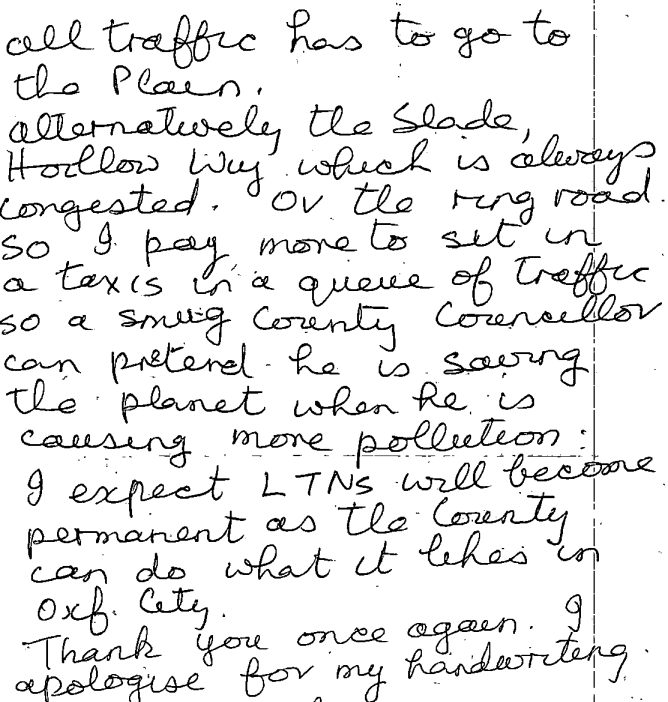 all traffic has to go to
the Plain.
alternatively the Slade,
Hollow Way which is always
congested. Or the ring road.
So I pay more to sit in
a taxis in a queue of traffic
so a smug County Councillor
can pretend he is saving
the planet when he is
causing more pollution.
I expect LTNs will become
permanent as the County
can do what it likes in
Oxf. City.
Thank you once again. I
apologise for my handwriting.